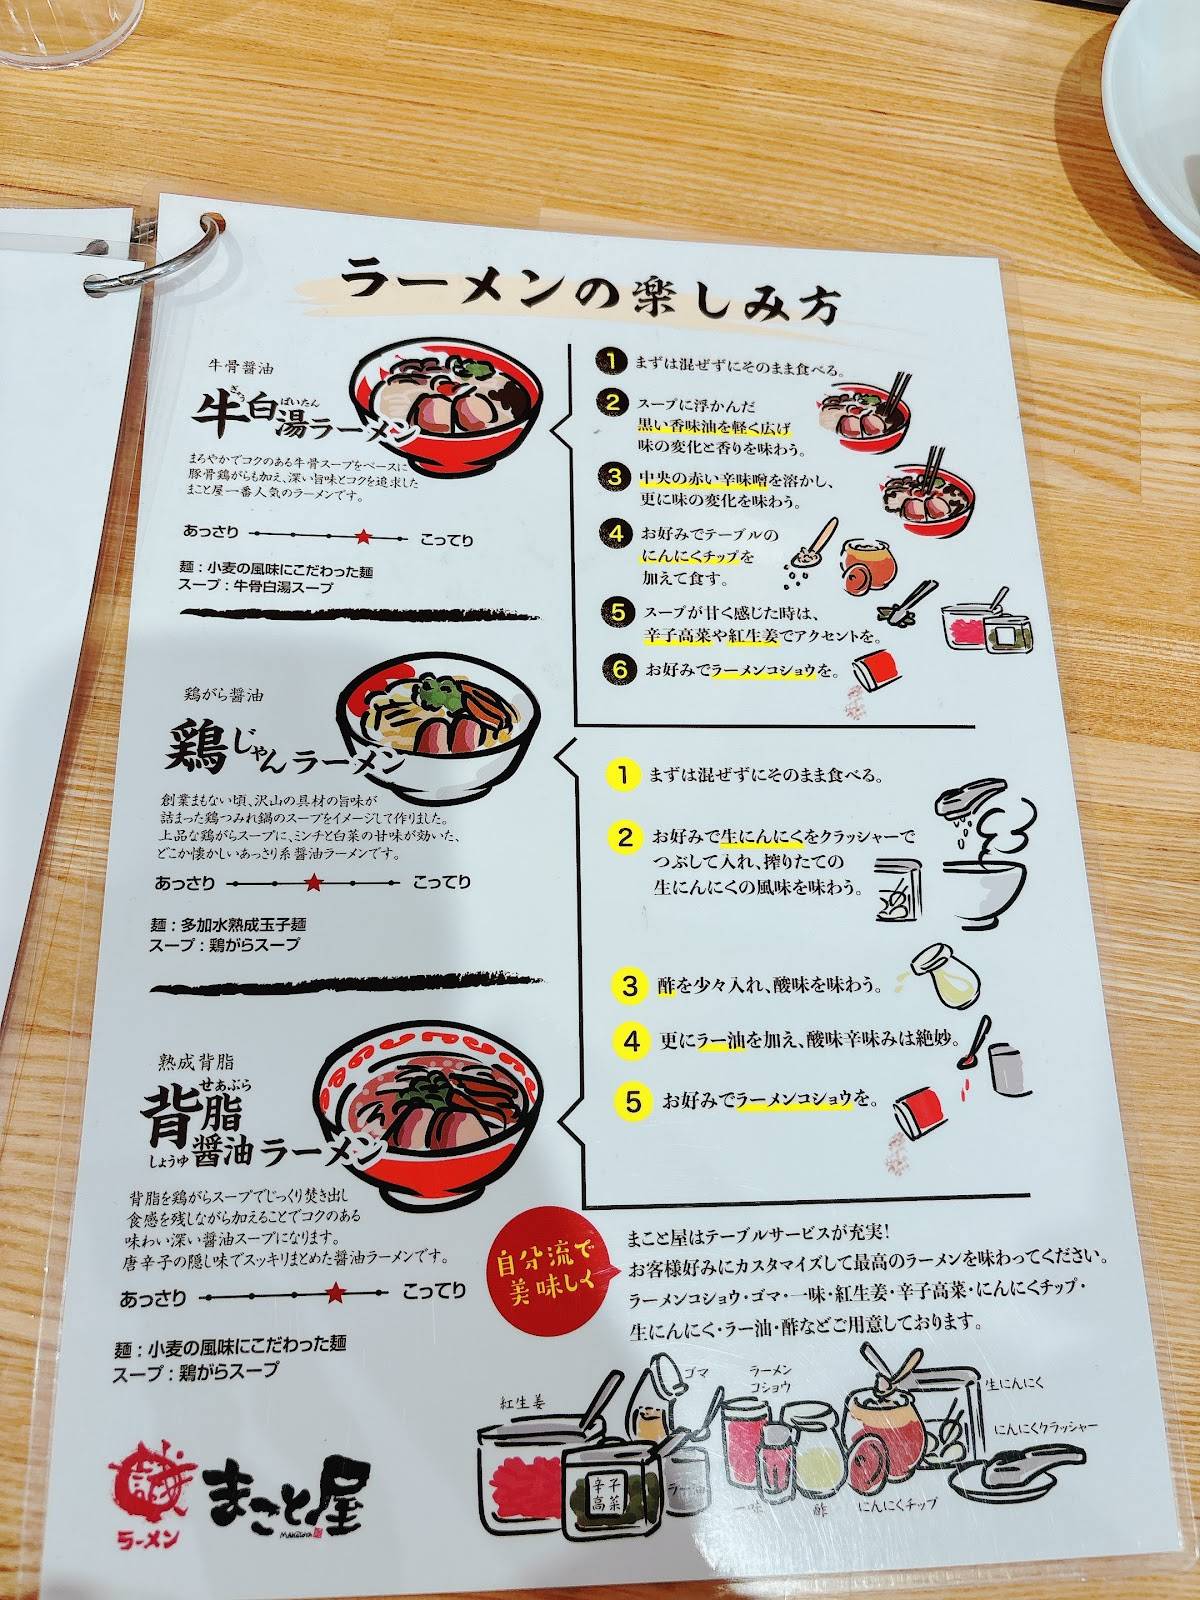 ラーメンの楽しみ方
牛骨醤油
ぎゅう ぱいたん
牛白湯ラーメン
まろやかでコクのある牛骨スープをベースに
豚骨鶏がらも加え、深い旨味とコクを追求した
まこと屋一番人気のラーメンです。
あっさり こってり
麺：小麦の風味にこだわった麺
スープ：牛骨白湯スープ
1 まずは混ぜずにそのまま食べる。
2 スープに浮かんだ
黒い香味油を軽く広げ
味の変化と香りを味わう。
3 中央の赤い辛味噌を溶かし、
更に味の変化を味わう。
4 お好みでテーブルの
にんにくチップを
加えて食す。
5 スープが甘く感じた時は、
辛子高菜や紅生姜でアクセントを。
6 お好みでラーメンコショウを。
鶏がら醤油
鶏じゃんラーメン
創業まもない頃、沢山の具材の旨味が
詰まった鶏つみれ鍋のスープをイメージして作りました。
上品な鶏がらスープに、ミンチと白菜の甘味が効いた、
どこか懐かしいあっさり系醤油ラーメンです。
あっさり こってり
麺：多加水熟成玉子麺
スープ：鶏がらスープ
熟成背脂
せあぶら
背脂
しょうゆ
醤油ラーメン
背脂を鶏がらスープでじっくり焚き出し
食感を残しながら加えることでコクのある
味わい深い醤油スープになります。
唐辛子の隠し味でスッキリまとめた醤油ラーメンです。
あっさり こってり
麺：小麦の風味にこだわった麺
スープ：鶏がらスープ
1 まずは混ぜずにそのまま食べる。
2 お好みで生にんにくをクラッシャーで
つぶして入れ、搾りたての
生にんにくの風味を味わう。
3 酢を少々入れ、酸味を味わう。
4 更にラー油を加え、酸味辛味みは絶妙。
5 お好みでラーメンコショウを。
自分流で
美味しく
まこと屋はテーブルサービスが充実!
お客様好みにカスタマイズして最高のラーメンを味わってください。
ラーメンコショウ・ゴマ・一味・紅生姜・辛子高菜・にんにくチップ・
生にんにく・ラー油・酢などご用意しております。
紅生姜
ゴマ
ラーメン
コショウ
生にんにく
にんにくクラッシャー
辛子
高菜
ラー油
一味
酢
にんにくチップ
ラーメン
まこと屋
MAKOTOYA